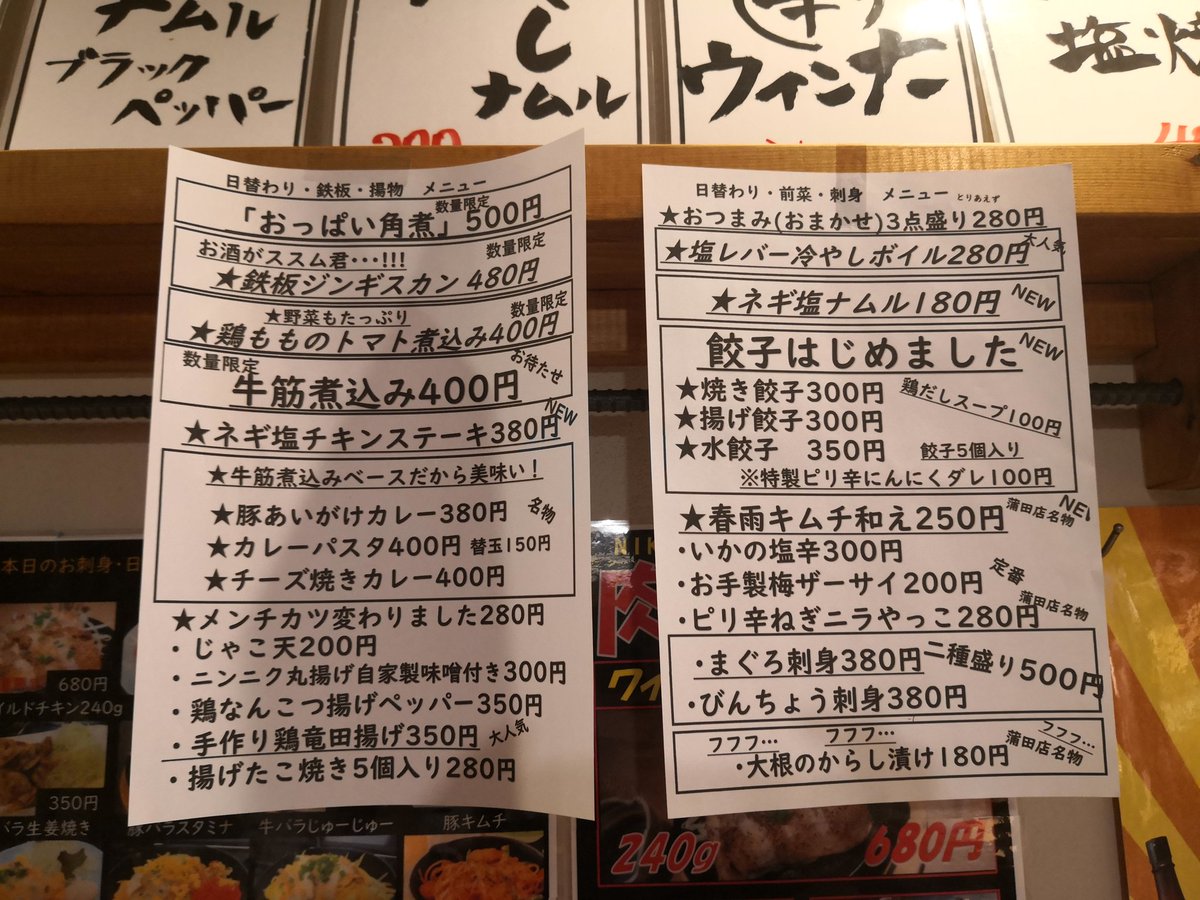 ナムル
ブラック
ペッパー
し
ナムル
ウインナー
塩焼
日替わり・鉄板・揚物 メニュー
数量限定
「おっぱい角煮」500円
お酒がススム君・・・!!!
数量限定
★鉄板ジンギスカン 480円
★野菜もたっぷり
数量限定
★鶏もものトマト煮込み400円
数量限定
お待たせ
牛筋煮込み400円
NEW
★ネギ塩チキンステーキ380円
★牛筋煮込みベースだから美味い!
★豚あいがけカレー380円 名物
★カレーパスタ400円 替玉150円
★チーズ焼きカレー400円
★メンチカツ変わりました280円
・じゃこ天200円
・ニンニク丸揚げ自家製味噌付き300円
・鶏なんこつ揚げペッパー350円
・手作り鶏竜田揚げ350円 大人気
・揚げたこ焼き5個入り280円
日替わり・前菜・刺身 メニュー とりあえず
★おつまみ(おまかせ)3点盛り280円
大人気
★塩レバー冷やしボイル280円
★ネギ塩ナムル180円 NEW
餃子はじめました NEW
★焼き餃子300円 鶏だしスープ100円
★揚げ餃子300円
★水餃子 350円 餃子5個入り
※特製ピリ辛にんにくダレ100円
NEW
★春雨キムチ和え250円 蒲田店名物
・いかの塩辛300円
・お手製梅ザーサイ200円 定番
蒲田店名物
・ピリ辛ねぎニラやっこ280円
・まぐろ刺身380円 二種盛り500円
・びんちょう刺身380円
フフフ… フフフ… フフフ…
・大根のからし漬け180円 蒲田店名物
本日のお刺身・日
680円
イルドチキン240g
350円
バラ生姜焼き
豚バラスタミナ
牛バラじゅーじゅー
豚キムチ
NIK
肉
ワイ
240g
680円